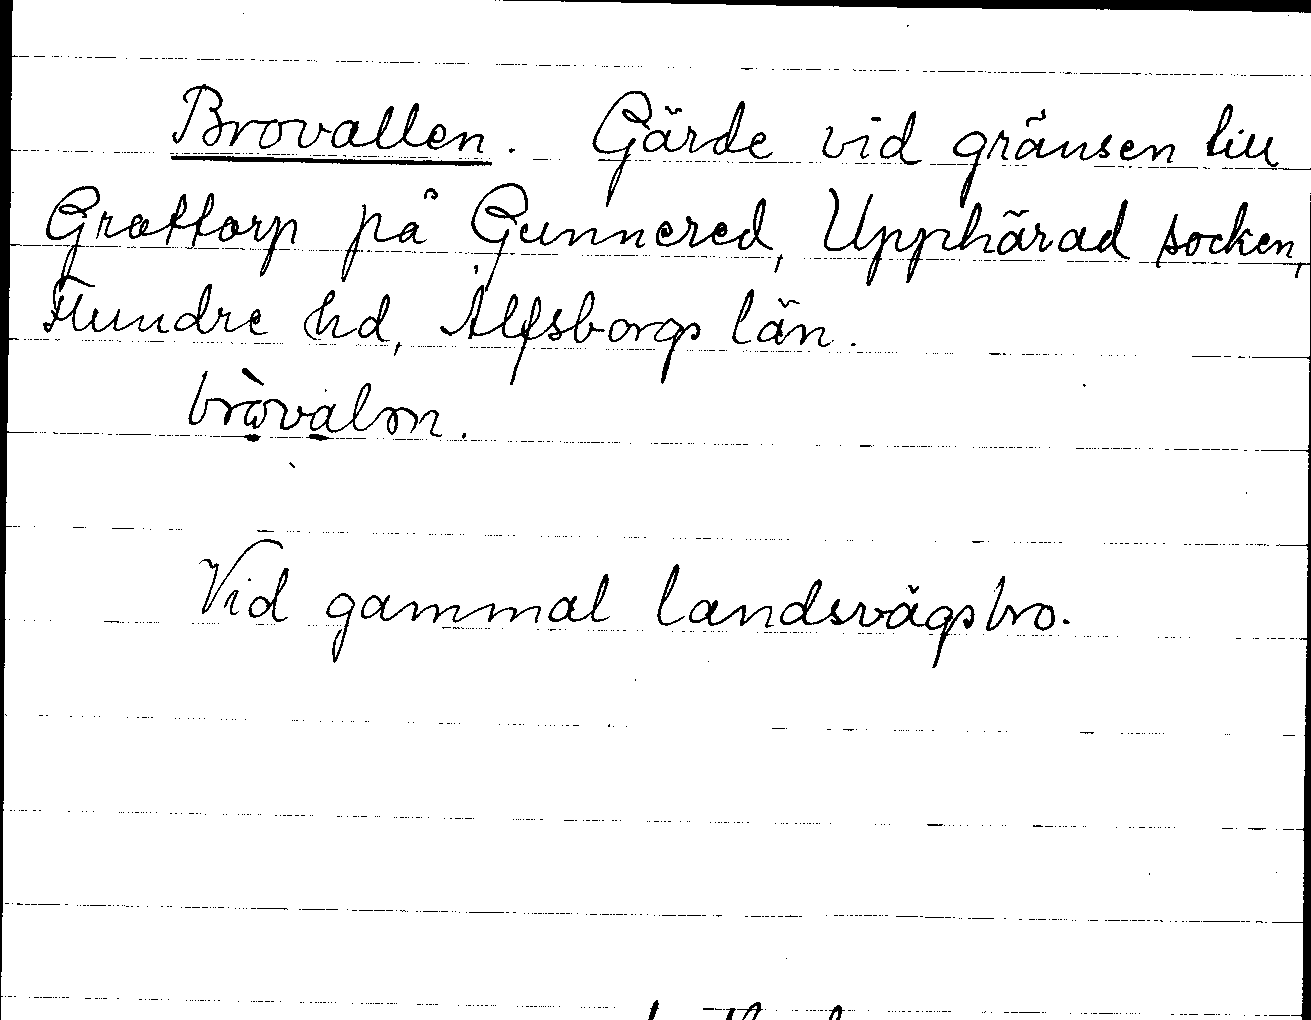 Brovallen. Gärde vid gränsen till
Grattorp på Gunnered, Upphärad socken,
Flundre hd, Älfsborgs län.
Vid gammal landsvägsbro.